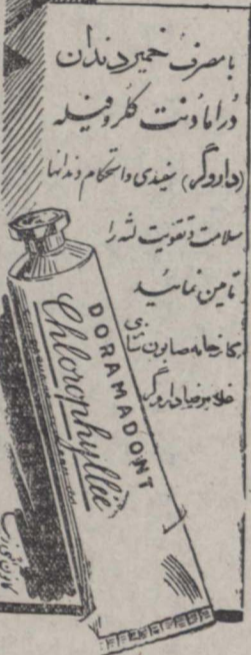 با مصرف خمیر دندان
درامادنت کلروفیله
(داروگر) سفیدی و استحکام دندانها
سلامت و تقویت لثه را
تامین نمائید
کارخانه صابون سازی
غلامرضا داروگر
DORAMADONT
Chlorophyllée